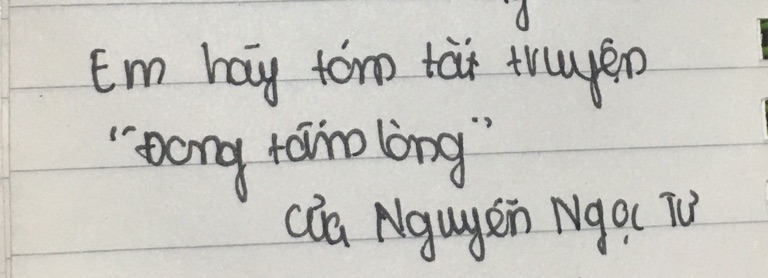 Em hãy tóm tắt truyện
"Đong tấm lòng"
của Nguyễn Ngọc Tư